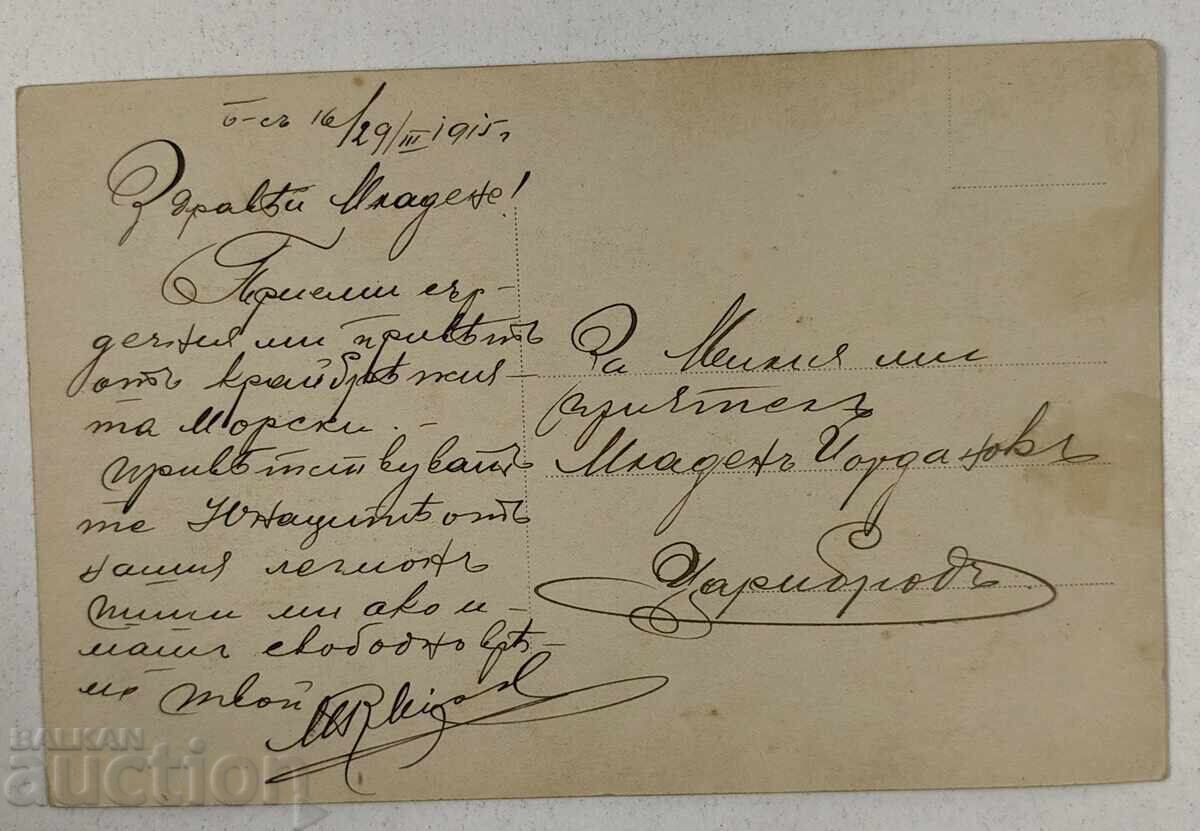 Б-съ 16/29/III 1915 г
Здравѣй Младене!
Приеми сър-
дечния ми привѣтъ
отъ крайбрѣжия-
та Морски. –
привѣтствувамъ
те Юнацитѣ отъ
нашия легионъ
пиши ми ако и-
машъ свободно врѣ-
ме твой
За Милия ми
приятель
Младенъ Йордановъ
Царибродъ
BALKAN
auction